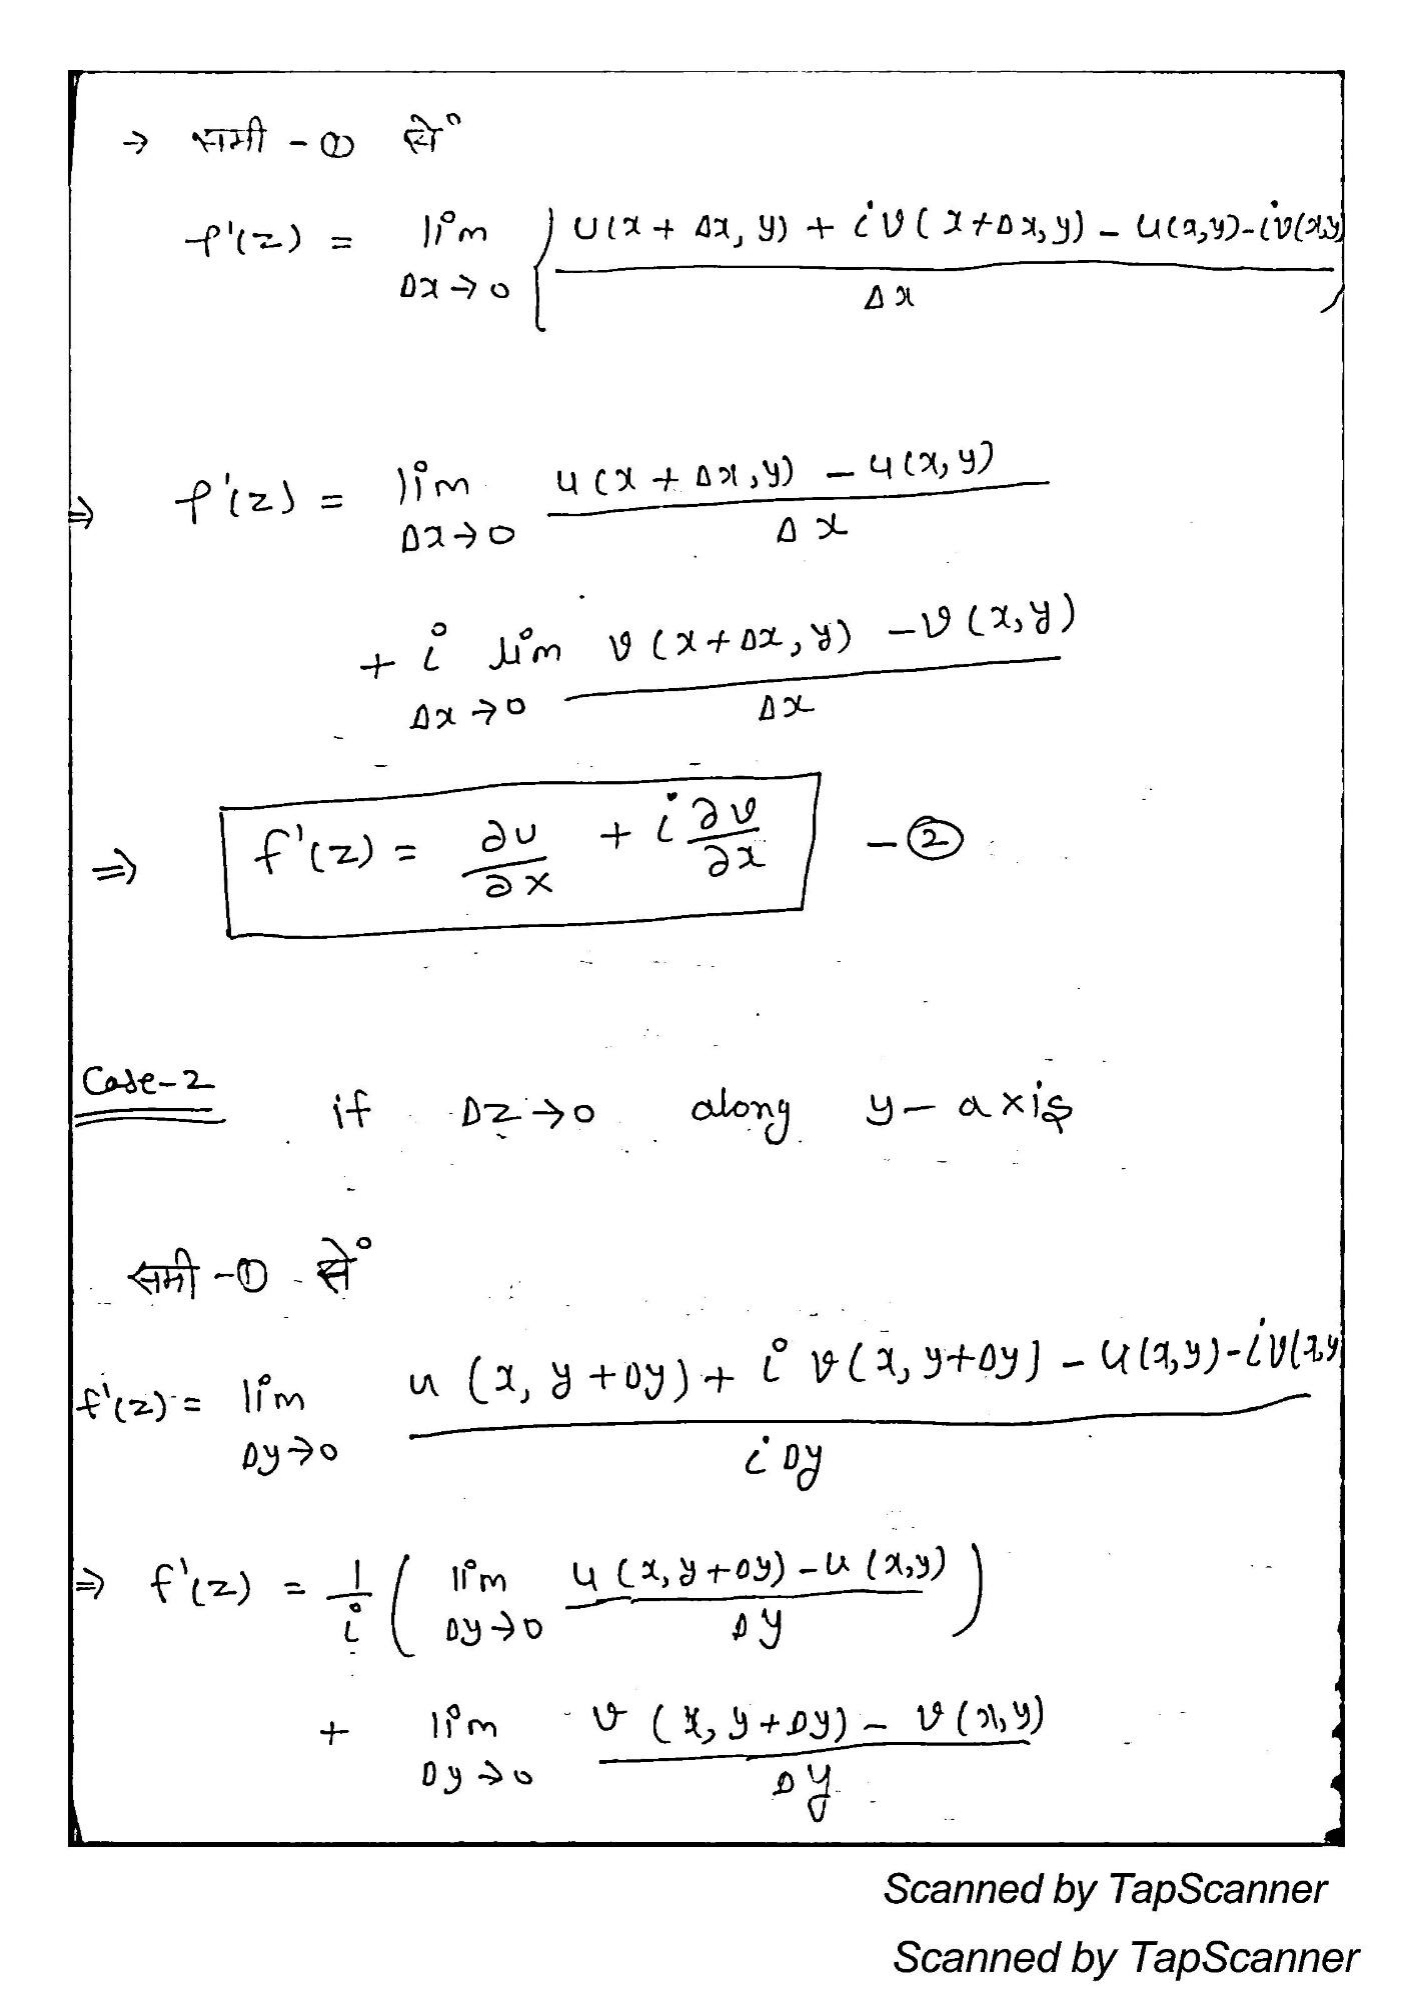 → समी - ① से°
f'(z) = lim Δx→0 { u(x + Δx, y) + i v(x+Δx, y) - u(x,y) - i v(x,y) / Δx }
⇒ f'(z) = lim Δx→0 u(x + Δx, y) - u(x, y) / Δx
+ i lim Δx→0 v(x+Δx, y) - v(x, y) / Δx
⇒ f'(z) = ∂u/∂x + i ∂v/∂x - ②
Case-2 if Δz→0 along y-axis
समी -① से°
f'(z) = lim Δy→0 u(x, y+Δy) + i v(x, y+Δy) - u(x,y) - i v(x,y / iΔy
⇒ f'(z) = 1/i ( lim Δy→0 u(x, y+Δy) - u(x,y) / Δy )
+ lim Δy→0 v(x, y+Δy) - v(x, y) / Δy
Scanned by TapScanner
Scanned by TapScanner